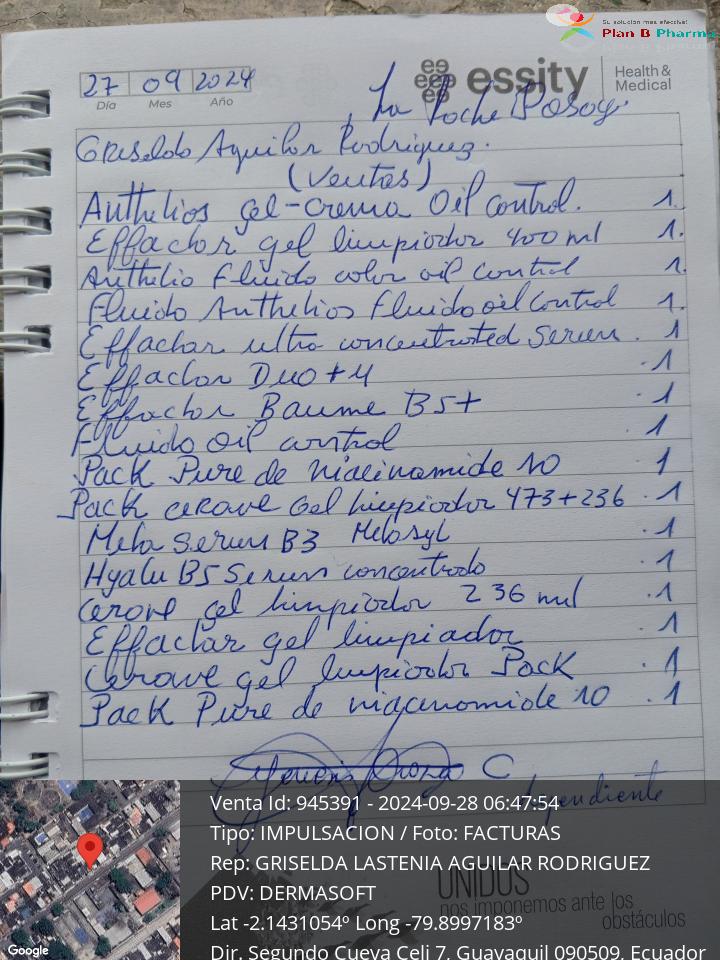 Su solución más efectiva!
Plan B Pharma
27 09 2024
Día Mes Año
essity
Health &
Medical
La Roche Posay.
Griselda Aguilar Rodriguez.
(Ventas)
Anthelios gel-crema Oil control. 1.
Effaclar gel limpiador 400 ml 1.
Anthelio Fluido color oil control 1.
Fluido Anthelios Fluido oil control 1.
Effaclar ultra concentrated Serum. 1
Effaclar Duo + M .1
Effaclar Baume B5+ .1
Fluido Oil control 1
Pack Pure de niacinamide 10 1
Pack cerave Gel limpiador 473+236 .1
Mela Serum B3 Melasyl .1
Hyalu B5 Serum concentrado .1
Cerave gel limpiador 236 ml .1
Effaclar gel limpiador .1
Cerave gel limpiador Pack .1
Pack Pure de niacinamide 10 .1
C
Dependiente
UNIDOS
nos imponemos ante los
obstáculos
Venta Id: 945391 - 2024-09-28 06:47:54
Tipo: IMPULSACION / Foto: FACTURAS
Rep: GRISELDA LASTENIA AGUILAR RODRIGUEZ
PDV: DERMASOFT
Lat -2.1431054º Long -79.8997183º
Dir. Segundo Cueva Celi 7, Guayaquil 090509, Ecuador
Google